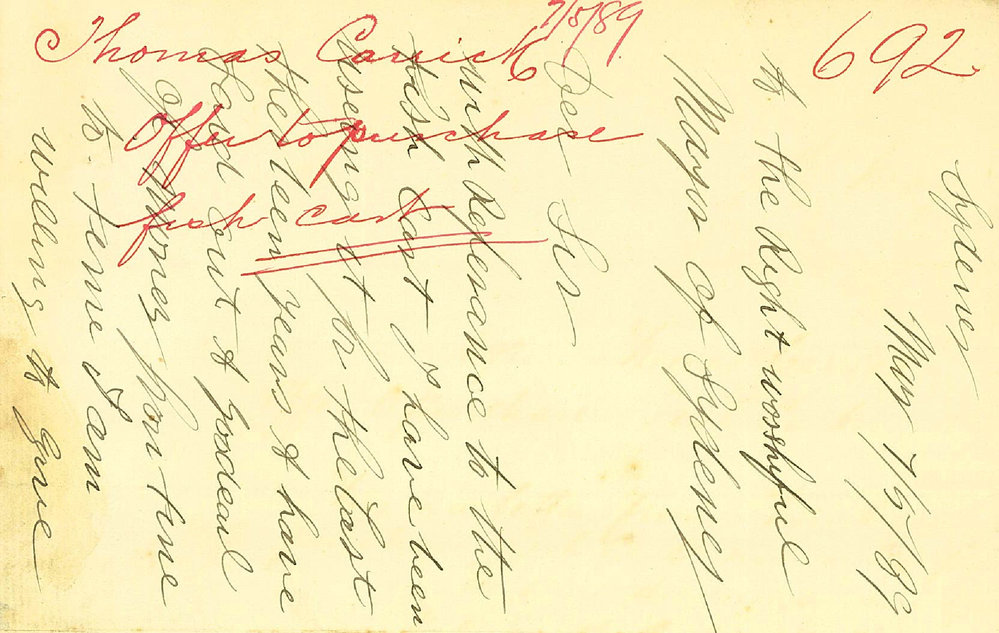 7/5/89
Thomas Carrick 692
Offer to purchase
fish cart
Sydeney
May 7/5/89
to the Right worshyful
Mayor of Sydeney
Dear Sir
With Referance to the
Fish Cart I have been
useing it for the last
the teen years & have
Paid out A goodeal
of Money from time
to teme I am
willing to give